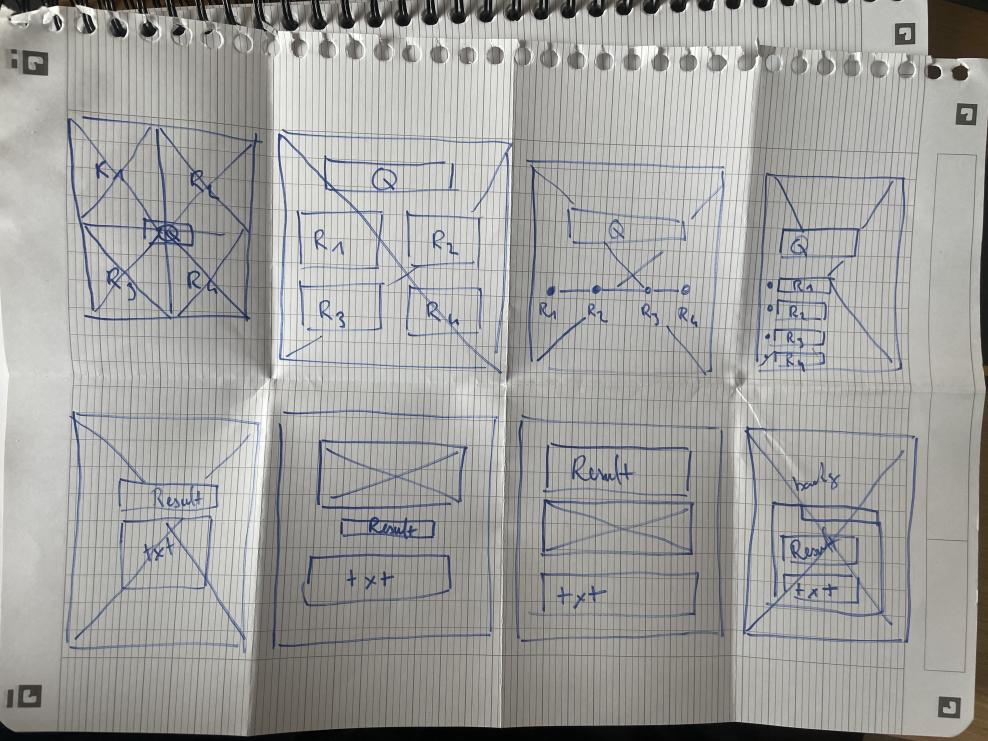 R1
R2
Q
R3
R4
Q
R1
R2
R3
R4
Q
R1
R2
R3
R4
Q
R1
R2
R3
R4
Result
txt
Result
txt
Result
txt
Result
txt